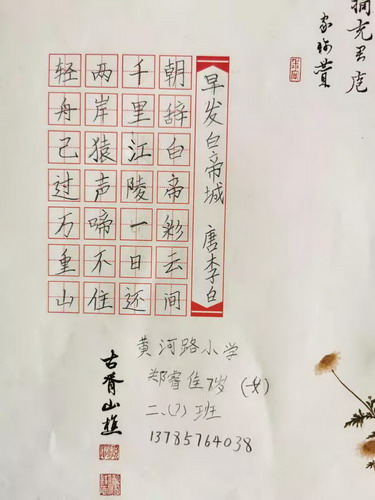 早发白帝城 唐李白
朝辞白帝彩云间
千里江陵一日还
两岸猿声啼不住
轻舟已过万重山
黄河路小学
郑睿佳7岁 (女)
二、(7)班
13785764038